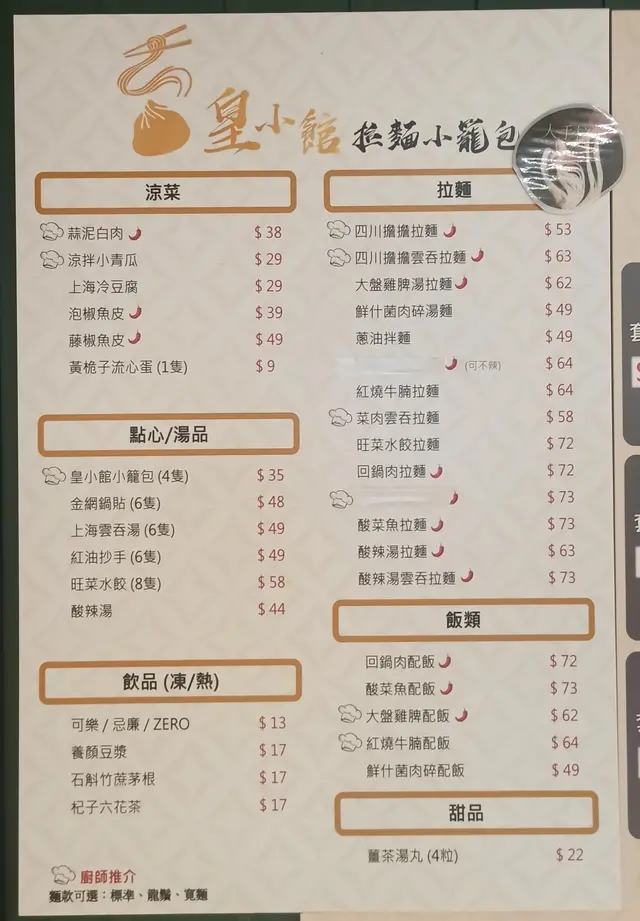 皇小館 拉麵小籠包
涼菜
蒜泥白肉 $ 38
涼拌小青瓜 $ 29
上海冷豆腐 $ 29
泡椒魚皮 $ 39
藤椒魚皮 $ 49
黃桅子流心蛋 (1隻) $ 9
點心/湯品
皇小館小籠包 (4隻) $ 35
金網鍋貼 (6隻) $ 48
上海雲吞湯 (6隻) $ 49
紅油抄手 (6隻) $ 49
旺菜水餃 (8隻) $ 58
酸辣湯 $ 44
飲品 (凍/熱)
可樂 / 忌廉 / ZERO $ 13
養顏豆漿 $ 17
石斛竹蔗茅根 $ 17
杞子六花茶 $ 17
廚師推介
麵款可選：標準、龍鬚、寬麵
拉麵
四川擔擔拉麵 $ 53
四川擔擔雲吞拉麵 $ 63
大盤雞脾湯拉麵 $ 62
鮮什菌肉碎湯麵 $ 49
蔥油拌麵 $ 49
(可不辣) $ 64
紅燒牛腩拉麵 $ 64
菜肉雲吞拉麵 $ 58
旺菜水餃拉麵 $ 72
回鍋肉拉麵 $ 72
$ 73
酸菜魚拉麵 $ 73
酸辣湯拉麵 $ 63
酸辣湯雲吞拉麵 $ 73
飯類
回鍋肉配飯 $ 72
酸菜魚配飯 $ 73
大盤雞脾配飯 $ 62
紅燒牛腩配飯 $ 64
鮮什菌肉碎配飯 $ 49
甜品
薑茶湯丸 (4粒) $ 22